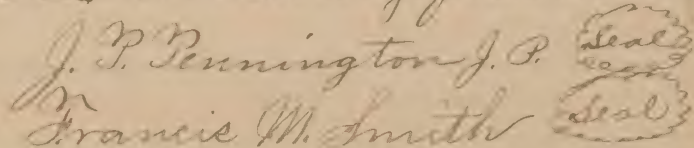 J. P. Pennington J. P. Seal
Francis M. Smith Seal